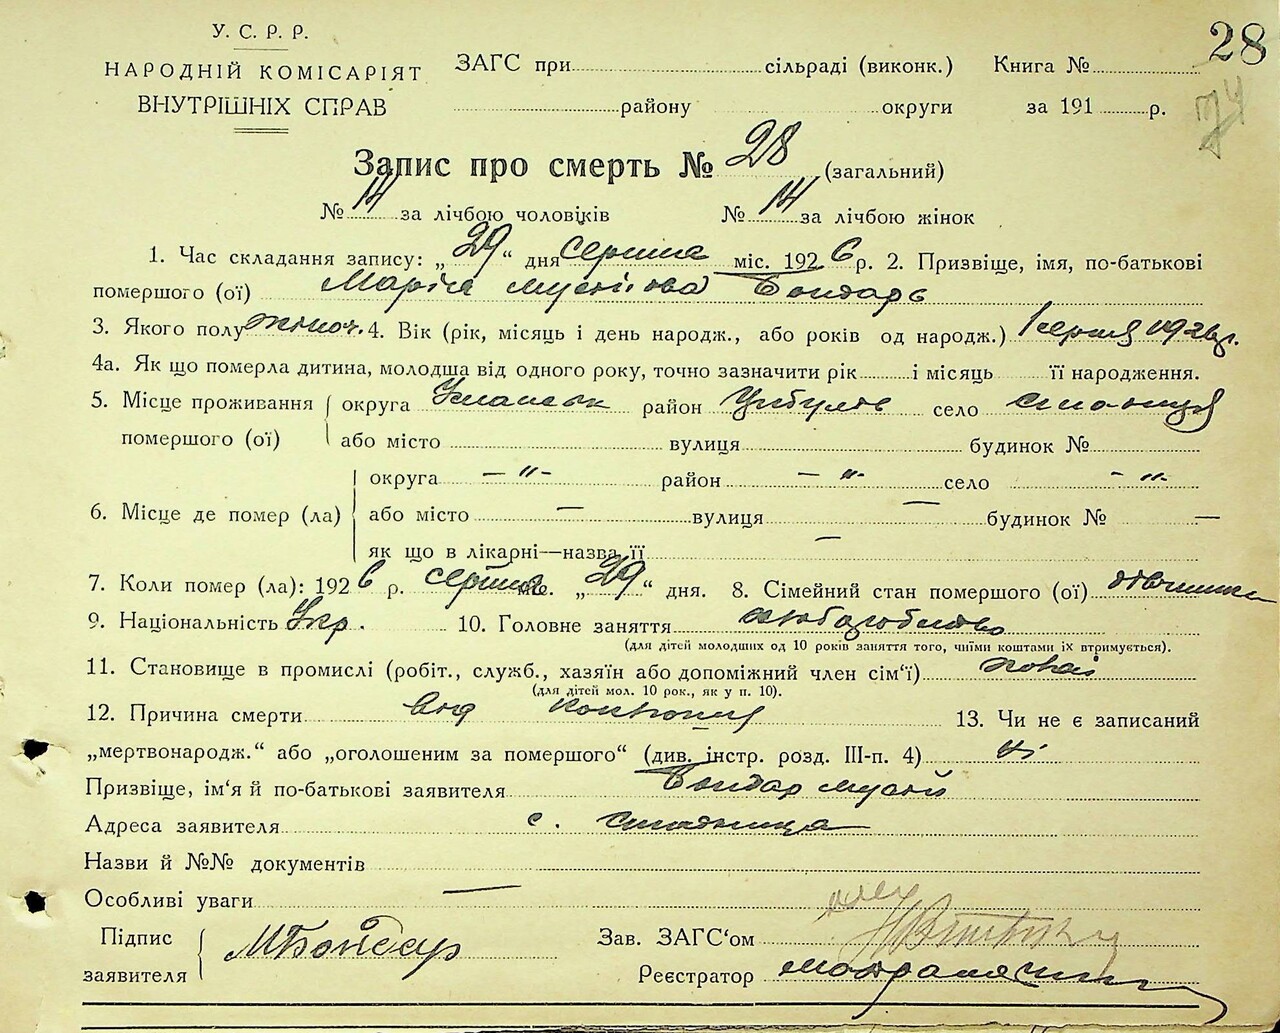 У. С. Р. Р.
НАРОДНІЙ КОМІСАРІЯТ
ВНУТРІШНІХ СПРАВ
ЗАГС при сільраді (виконк.) Книга №
району округи за 191 р.
28
74
Запис про смерть № 28 (загальний)
№ 14 за лічбою чоловіків № 14 за лічбою жінок
1. Час складання запису: „29“ дня серпня міс. 1926 р. 2. Призвіще, імя, по-батькові
помершого (ої) Марія Мусієва Бондарь
3. Якого полу жіноч. 4. Вік (рік, місяць і день народж., або років од народж.) 1 серпня 1926 р.
4а. Як що померла дитина, молодша від одного року, точно зазначити рік і місяць її народження.
5. Місце проживання помершого (ої) округа Уманськ район Цибулів село
або місто вулиця будинок №
6. Місце де помер (ла) округа — „ — район — „ — село - „ -
або місто — вулиця — будинок № —
як що в лікарні—назва її —
7. Коли помер (ла): 1926 р. серпня міс. „29“ дня. 8. Сімейний стан помершого (ої) дівчинка
9. Національність Укр. 10. Головне заняття хліборобство
(для дітей молодших од 10 років заняття того, чиїми коштами їх втримується).
11. Становище в промислі (робіт., служб., хазяїн або допоміжний член сім‘ї)
(для дітей мол. 10 рок., як у п. 10).
12. Причина смерти від 13. Чи не є записаний
„мертвонародж.“ або „оголошеним за помершого“ (див. інстр. розд. III-п. 4) ні
Призвіще, ім‘я й по-батькові заявителя Бондар Мусій
Адреса заявителя с.
Назви й №№ документів
Особливі уваги —
Підпис заявителя МБондар
Зав. ЗАГС‘ом
Реєстратор